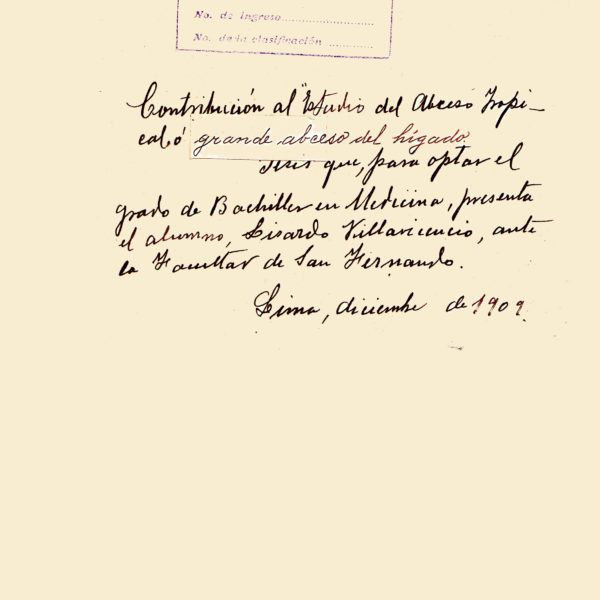 No. de ingreso....................
No. de la clasificación ..............
Contribución al "Estudio del Abceso Tropi-
cal ó grande abceso del hígado
Tesis que, para optar el
grado de Bachiller en Medicina, presenta
el alumno, Lisardo Villavicencio, ante
la Facultad de San Fernando.
Lima, diciembre de 1909.